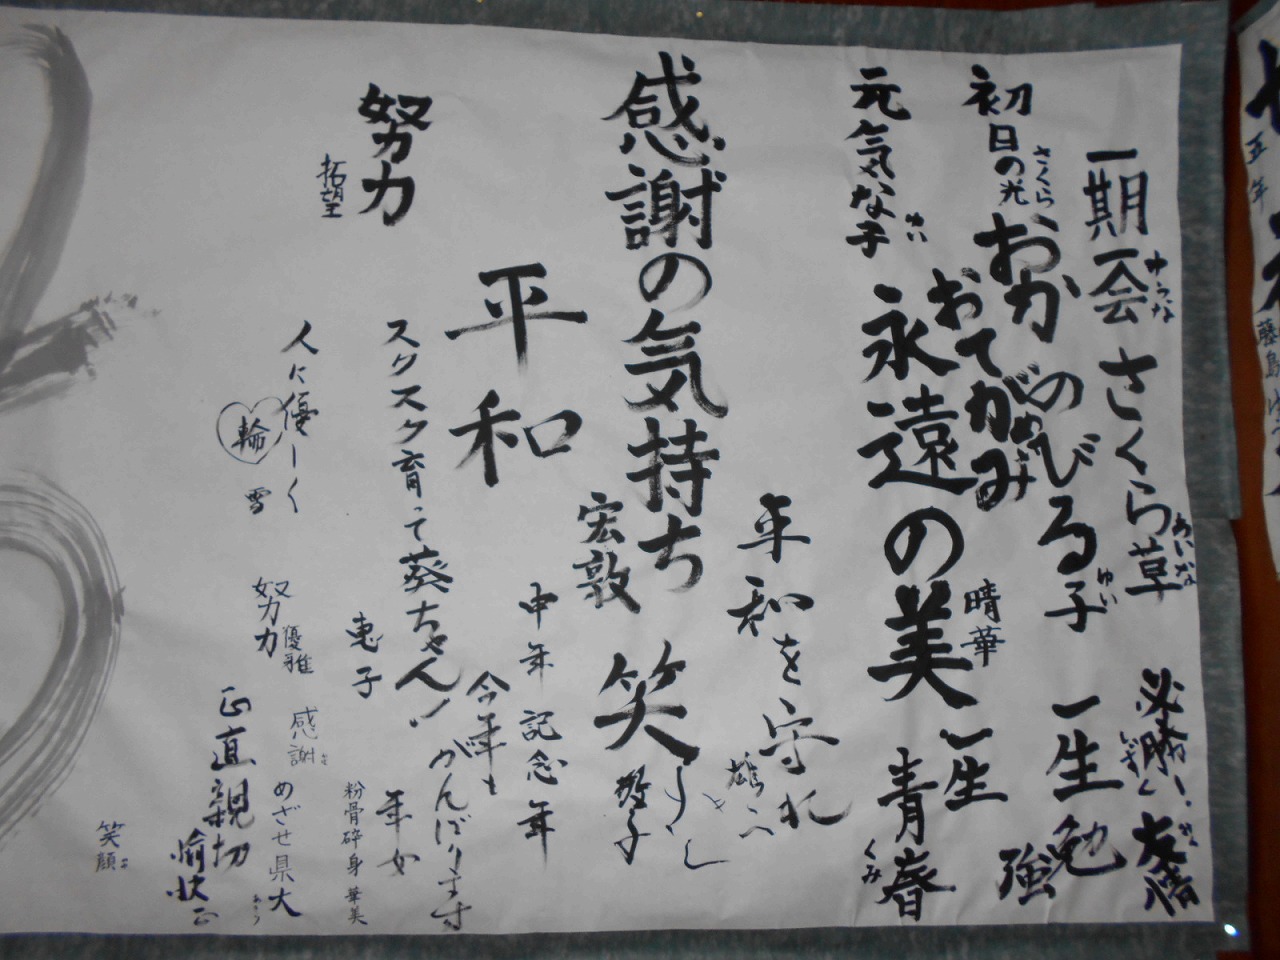 一期一会
さくら草
必勝
友情
初日の光
さくら
おか
のびる子
ゆい
一生
勉強
おてがみ
元気な子
永遠の美
晴華
一生
青春
くみ
平和を守れ
感謝の気持ち
宏敦
笑
申年
記念年
平和
今年も
がんばります
努力
拓望
スクスク育って葵ちゃん
恵子
年女
粉骨砕身
華美
人に優しく
輪
雪
努力
優雅
感謝
めざせ県大
正直
親切
愉快
笑顔
五年